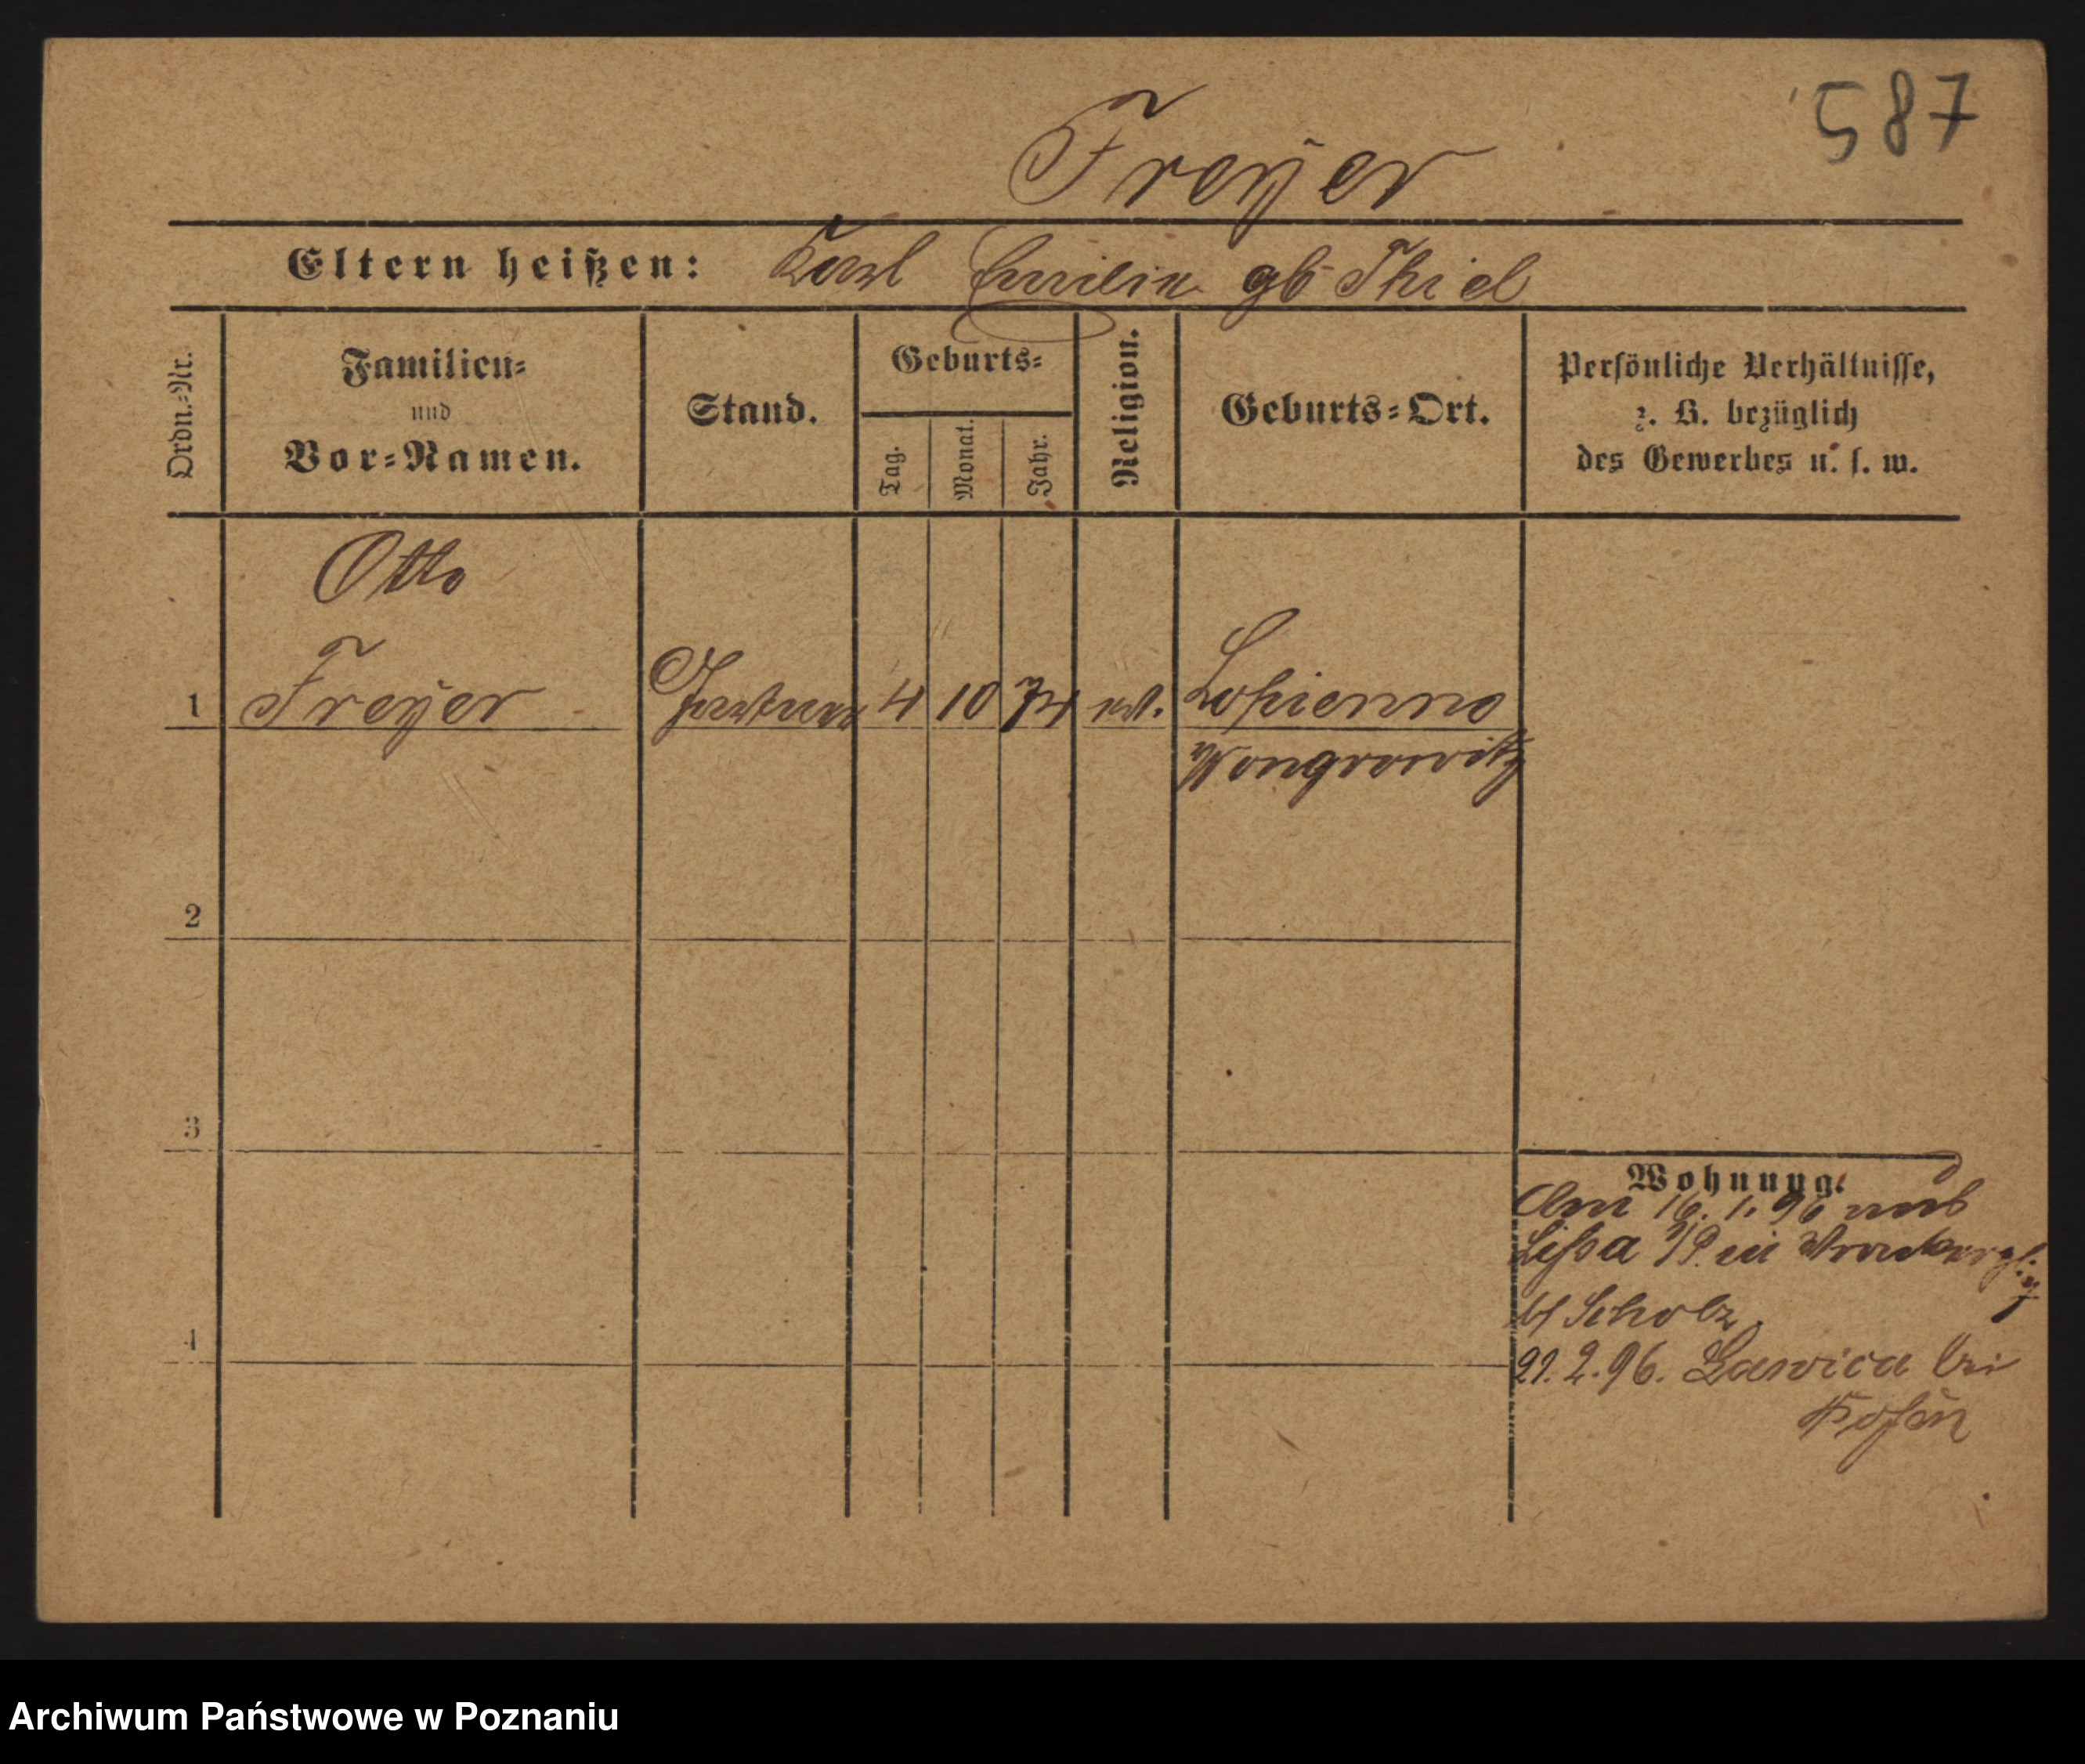 587
Freÿer
Eltern heißen: Karl Emilie gb Thiel
Ordn.-Nr.
Familien-
und
Vor-Namen.
Stand.
Geburts-
Tag.
Monat.
Jahr.
Religion.
Geburts-Ort.
Persönliche Verhältnisse,
z. B. bezüglich
des Gewerbes u. s. w.
Otto
1 Freÿer Gärtner 4 10 74 ev. Lopienno
Wongrowitz
2
3
4
Wohnung.
Am 16. 1. 96 aus
Lissa i/P. in
b/ Scholz.
21. 2. 96. Lawica bei
Posen
Archiwum Państwowe w Poznaniu